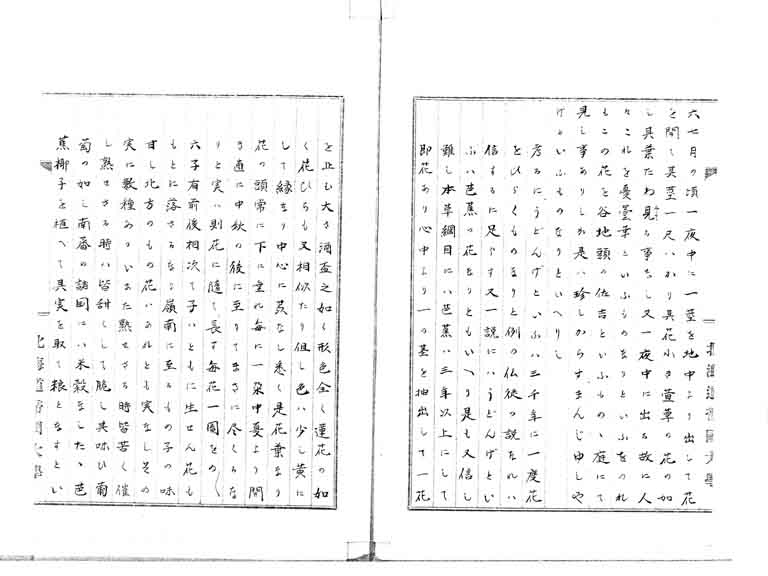 六七月の頃一夜中に一莖を地中より出して花
を開く其莖一尺ハかり其花小き萱草の花の如
し其葉たわ見る事なし又一夜中に出る故に人
々これを憂曇華といふものなりといふをつれ
もこの花を谷地頭の佐吉といふものゝ庭にて
見し事ありしか是ハ珍しからすまんじ申しや
けといふものなりといへりし
考るにうどんげといふハ三千年に一度花
をひらくものなりと例の仏徒の説なれハ
信するに足らす又一説にハうどんげとい
ふハ芭蕉の花なりともいへり是も又信し
難し本草綱目にハ芭蕉ハ三年以上にして
即花あり心中より一の莖を抽出して一花
を止む大さ酒盃之如く形色全く蓮花の如
く花ひらも又相似たり但し色ハ少し黄に
して縁なり中心に蕊なし悉く是花葉なり
花の頭常に下に垂れ毎に一朶中夏より開
き直に中秋の後に至りてまさに尽くるな
りと実ハ則花に随て長す毎花一圍をの〱
六子有前後相次て子いともに生せん花も
もとに落さるなり嶺南に至るもの子の味
甘し北方のもの花ハあれとも実なしその
実に数種ありいまた熟せさる時皆苦く催
し熟さるゝ時ハ皆甜くして脆し其味ひ葡
萄の如し南番の諸国にハ米穀なしたゝ芭
蕉椰子を植へて其実を取て粮となすとい